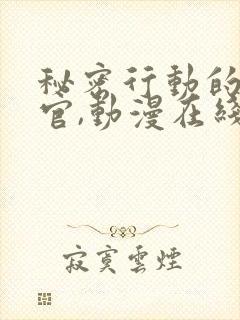 秘密行動的
官,動漫在綫
寂寞雲煙